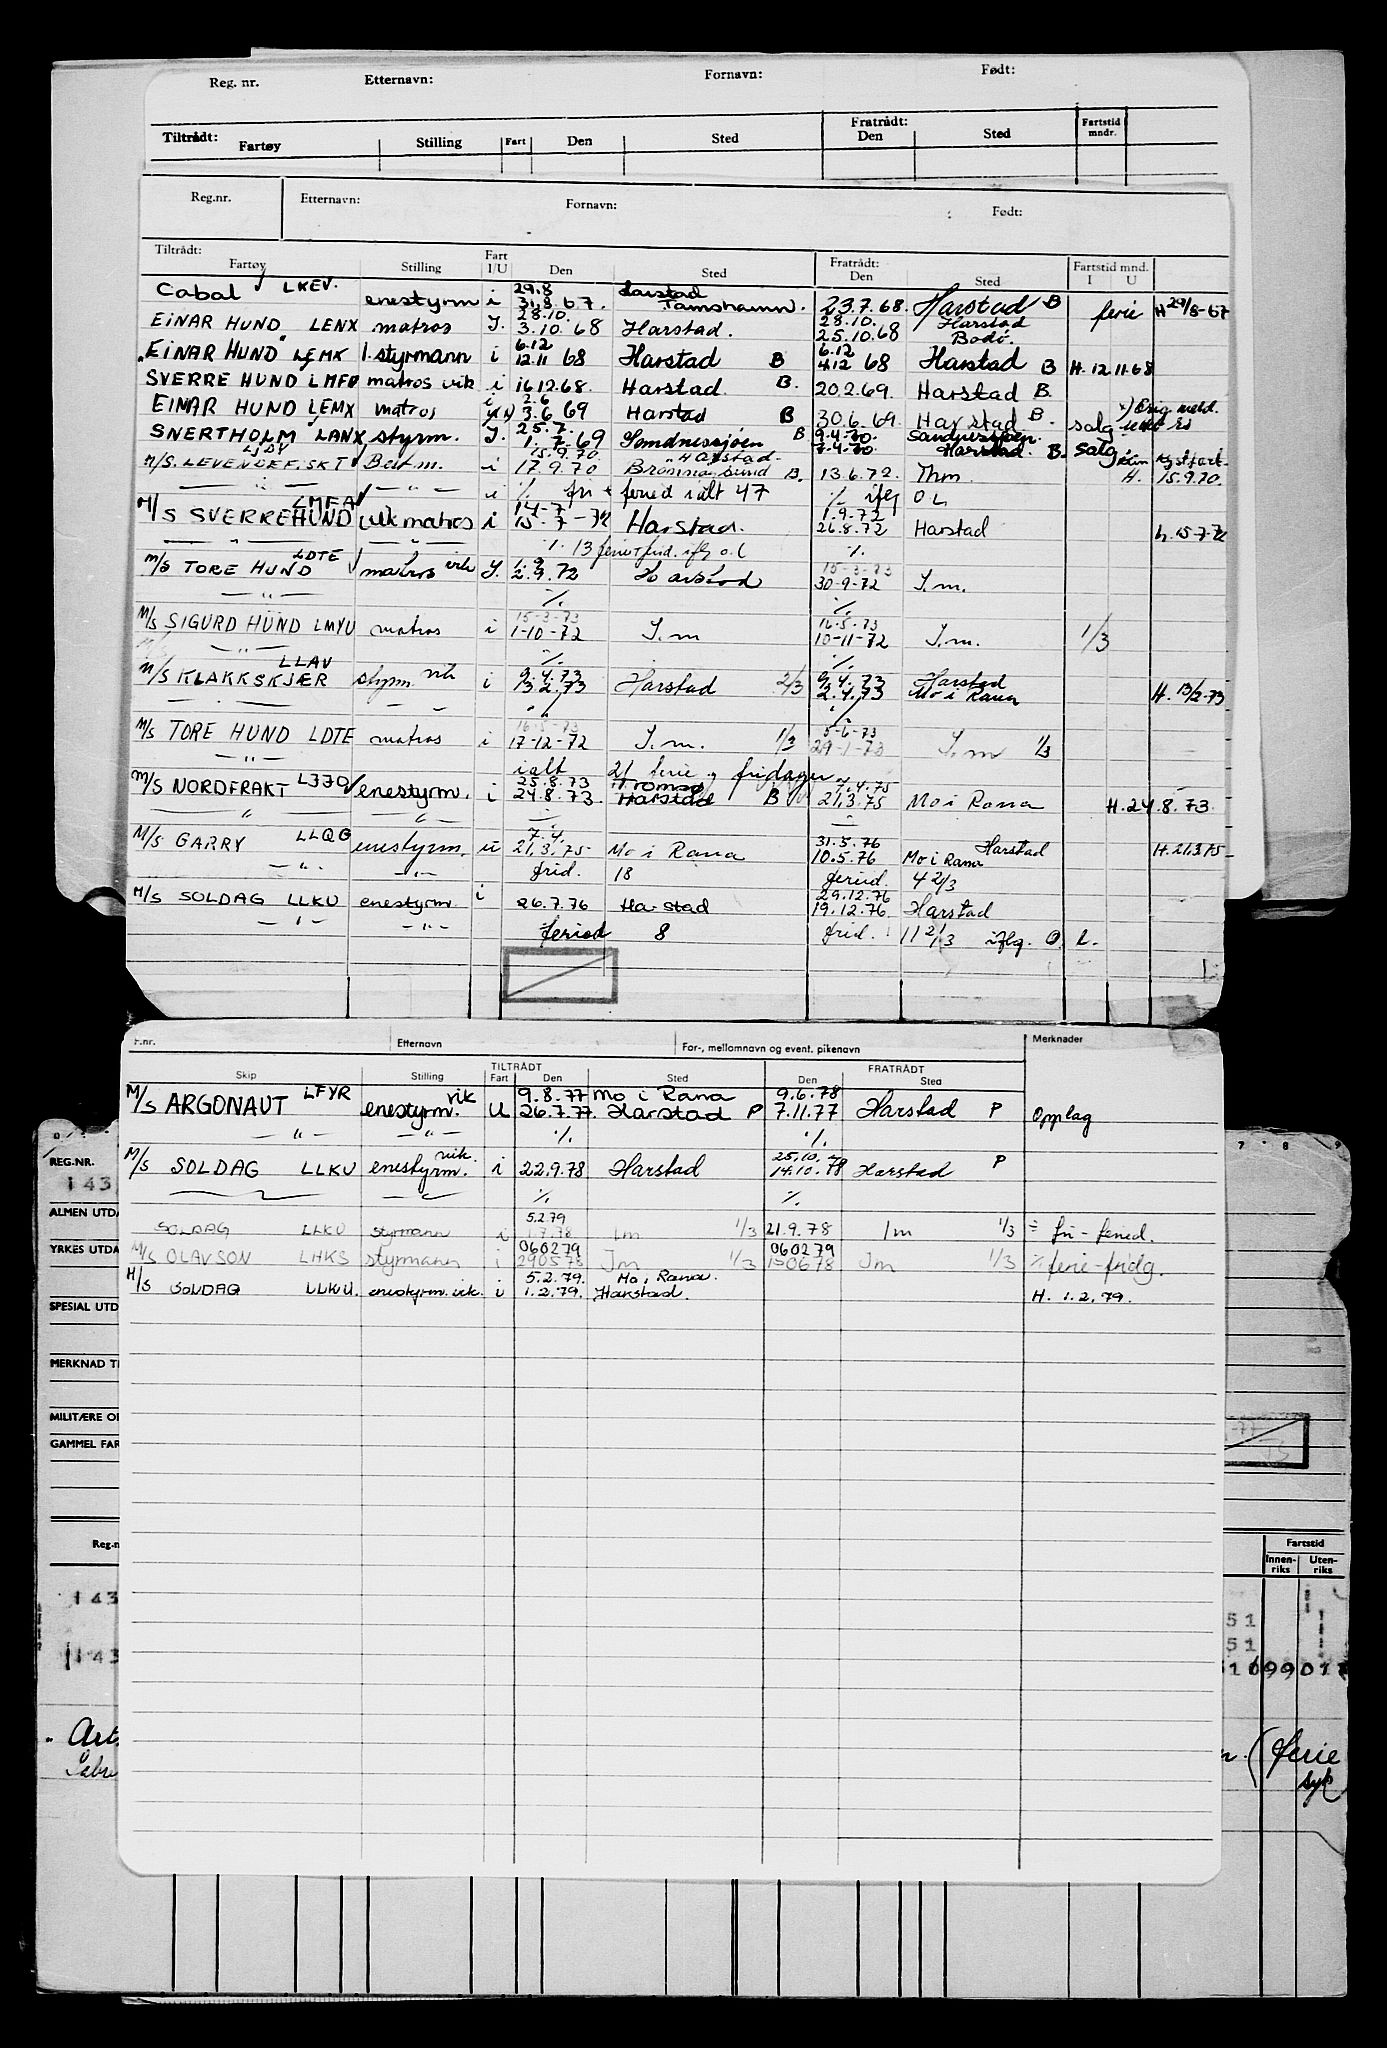 Reg. nr. Etternavn: Fornavn: Født:
Tiltrådt: Fratrådt: Fartstid mndr.
Fartøy Stilling Fart Den Sted Den Sted
Reg.nr. Etternavn: Fornavn: Født:
Tiltrådt: Fart Fratrådt: Fartstid mnd.
Fartøy Stilling I/U Den Sted Den Sted I U
29.8
Cabal LKEV. enestyrm i 31.8.67. Tamshamn. 23.7.68. Harstad B ferie H 29/8-67
28.10. 28.10. Harstad
EINAR HUND LENX matros I. 3.10.68 Harstad. 25.10.68 Bodø.
6.12 6.12
"EINAR HUND" LEMK 1. styrmann i 12.11 68 Harstad B 4.12 68 Harstad B H. 12.11.68
SVERRE HUND LMFD matros vik i 16.12.68. Harstad B. 20.2.69. Harstad B.
2.6 x) Orig. meld.
EINAR HUND LEMX matros 3.6 69 Harstad B 30.6.69. Harstad B. salg
25.7. 9.4.70. Sandnessjøen.
SNERTHOLM LANX styrm. I. 1.7.69 Sandnessjøen B 7.4.70. Harstad. B. Salg
LJDY 15.9.70 Harstad.
M/S. LEVENDE FISK I Best.m. i 17.9.70 Brønnøysund B. 13.6.72. Thm. H. 15.9.70.
— " — — " — i ./. fri + feried i alt 47 ./. iflg O L
LMFA 14-7 1.9.72
M/S SVERRE HUND vik matros i 15-7-72 Harstad. 26.8.72 Harstad h. 15-7-72
— " — — " — ./. 13 ferie+frid. iflg o.l ./.
LDTE 15-3-73
M/S TORE HUND matros vik I. 2.9.72 Harstad 30-9-72 I.m.
— " — ./. ./.
15-3-73 16-5-73
M/S SIGURD HUND LMYU matros i 1-10-72 I.m 10-11-72 I.m. 1/3
— " — ./. ./.
LLAV 9.4.73 9.4.73 Harstad
M/S KLAKKSKJÆR styrm. vik i 13.2.73 Harstad 2/3 2.4.73 Mo i Rana H. 13/2-73
16-5-73 5-6-73
M/S TORE HUND LDTE matros i 17-12-72 I.m. 1/3 29-1-73 I.m 1/3
— " — ialt 21 ferie og fridager
25.8.73 Tromsø 7.4.75
M/S NORDFRAKT LJJO enestyrm. i 24.8.73. Harstad B 21.3.75 Mo i Rana H. 24.8.73.
— " — — " —
7.4. 31.5.76 Harstad
M/S GARRY LLQG enestyrm. u 21.3.75 Mo i Rana 10.5.76 Mo i Rana H. 21.3.75
— " — — " — frid. 18 feried. 4 2/3
29.12.76
M/S SOLDAG LLKU enestyrm. i 26.7.76 Harstad 19.12.76 Harstad
— " — — " — feried 8 frid. 11 2/3 iflg. O. L.
F.nr. Etternavn For-, mellomnavn og event. pikenavn Merknader
TILTRÅDT FRATRÅDT
Skip Stilling Fart Den Sted Den Sted
vik 9.8.77 Mo i Rana 9.6.78
M/S ARGONAUT LFYR enestyrm. U 26.7.77. Harstad P 7.11.77 Harstad P Opplag
— " — — " — ./. ./.
vik. 25.10.
M/S SOLDAG LLKU enestyrm. i 22.9.78 Harstad 14.10.78 Harstad P
./. ./.
5.2.79
SOLDAG LLKU styrmann i 1.7.78 Im 1/3 21.9.78 Im 1/3 ÷ fri-feried.
060279 060279
M/S OLAVSON LHKS styrmann i 290578 Im 1/3 150678 Im 1/3 ./. ferie-fridg.
5.2.79. Mo i Rana.
M/S SOLDAG LLKU. enestyrm. vik. i 1.2.79. Harstad. H. 1.2.79.
REG.NR. 7 8 9
143
ALMEN UTDA
YRKES UTDA
SPESIAL UTD
MERKNAD T
MILITÆRE O
GAMMEL FAR
Reg.n Fartstid
Innen-riks Uten-riks
143 51
51
143 099017
Art. (ferie
syk